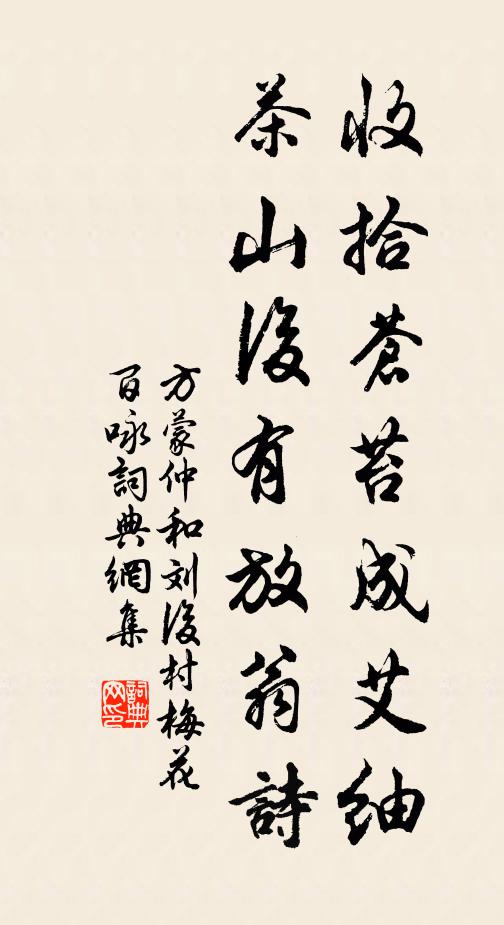 收拾蒼苔成艾紬
茶山後有放翁詩
方蒙仲和刘後村梅花
百咏詞典網集
詞典
网印